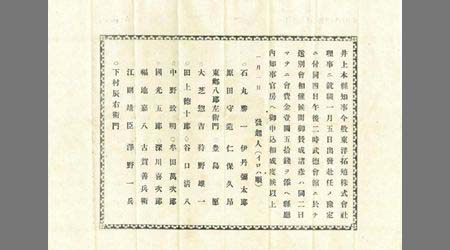 井上本縣知事今般東洋拓殖株式會社
理事ニ就職一月五日出發赴任ノ豫定
ニ付同四日午後二時武德會館ニ於テ
送別會相催候間御賛成諸彦ハ同二日
マテニ會費金壹圓五拾錢ヲ添ヘ縣廳
内知事官房ヘ御申込相成度候以上
一月一日
發起人(イロハ順)
○石丸勝一 伊丹彌太郎
原田守造 仁保久昂
東郷八郎左衛門 豊島愿
大芝惣吉 狩野雄一
○田上德十郎 ○谷口清八
中野致明 ○牟田萬次郎
國光五郎 深川喜次郎
福地嘉八 古賀善兵衛
江副靖臣 澤野一兵
○下村辰右衛門